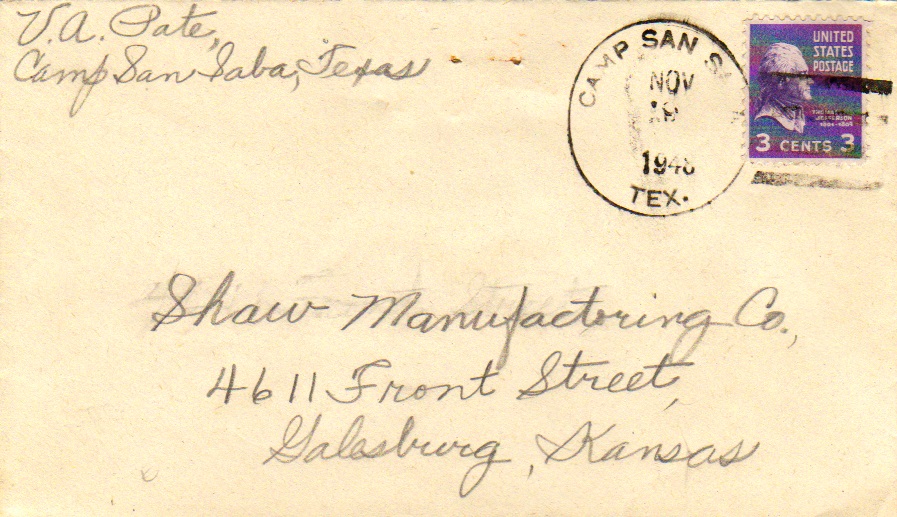 V. A. Pate,
Camp San Saba, Texas
CAMP SAN S
NOV
1948
TEX.
UNITED
STATES
POSTAGE
THOMAS
JEFFERSON
3 CENTS 3
Shaw Manufactoring Co.,
4611 Front Street,
Galesburg, Kansas